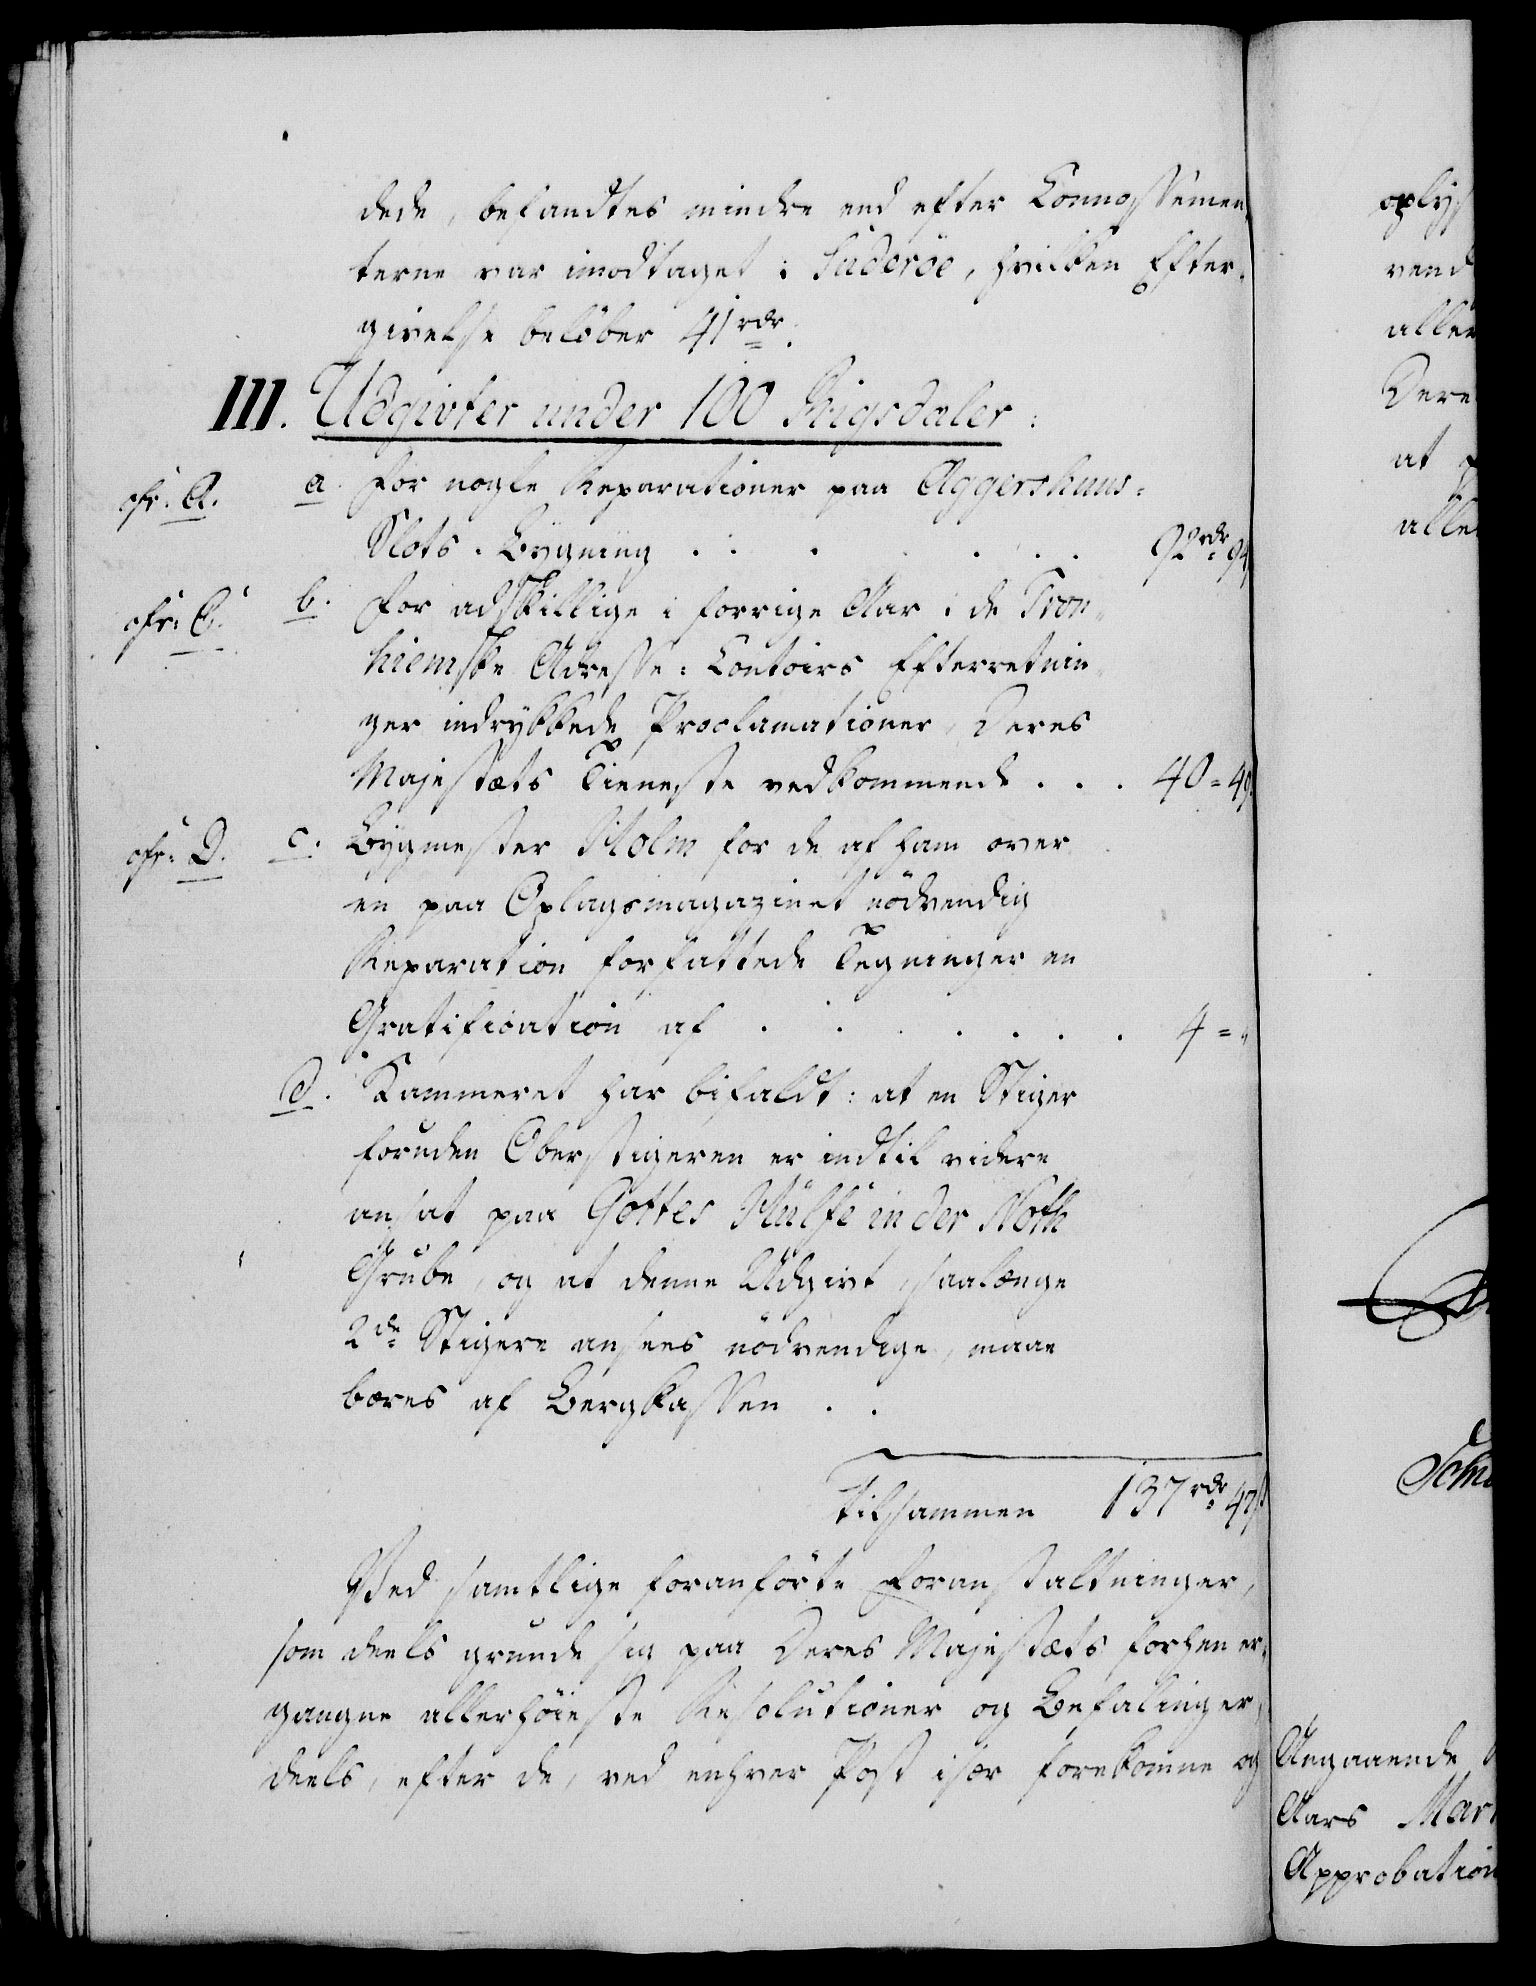 dede, befandtes mindre end efter Connossemen,
terne var imodtaget i Suderöe, hvilken Efter,
givelse belöber 41 rdr.
III. Udgivter under 100 Rigsdaler:
cfr. A. a. For nogle Reparationer paa Aggershuus-
Slots-Bygning . . . . . . 92 rdr 94
cfr. C. b. For adskillige i forrige Aar i de Tron-
hiemske Adresse-Contoirs Efterretnin-
ger indrykkede Proclamationer, Deres
Majestæts Tieneste vedkommende . . . 40 = 49
cfr. D. c. Bygmester Holm for de af ham over
en paa Oplagsmagazinet nödvendig
Reparation forfattede Tegninger en
Gratification af . . . . . . 4 = "
d. Kammeret har bifaldt: at en Stiger
foruden Oberstigeren er indtil videre
ansat paa Gottes Hülfe in der Noth
Grube, og at denne Udgivt, saalænge
2de Stigere ansees nödvendige, maae
bæres af Bergkassen . .
tilsammen 137 rdr 47 s
Ved samtlige foranförte Foranstaltninger,
som deels grunde sig paa Deres Majestæts forhen er,
gangne allerhöieste Resolutioner og Befalinger,
deels, efter de, ved enhver Post især forekomne og
oplys
vend
aller
Dere
at
alle
Angaaende
Aars Mar
Approbation